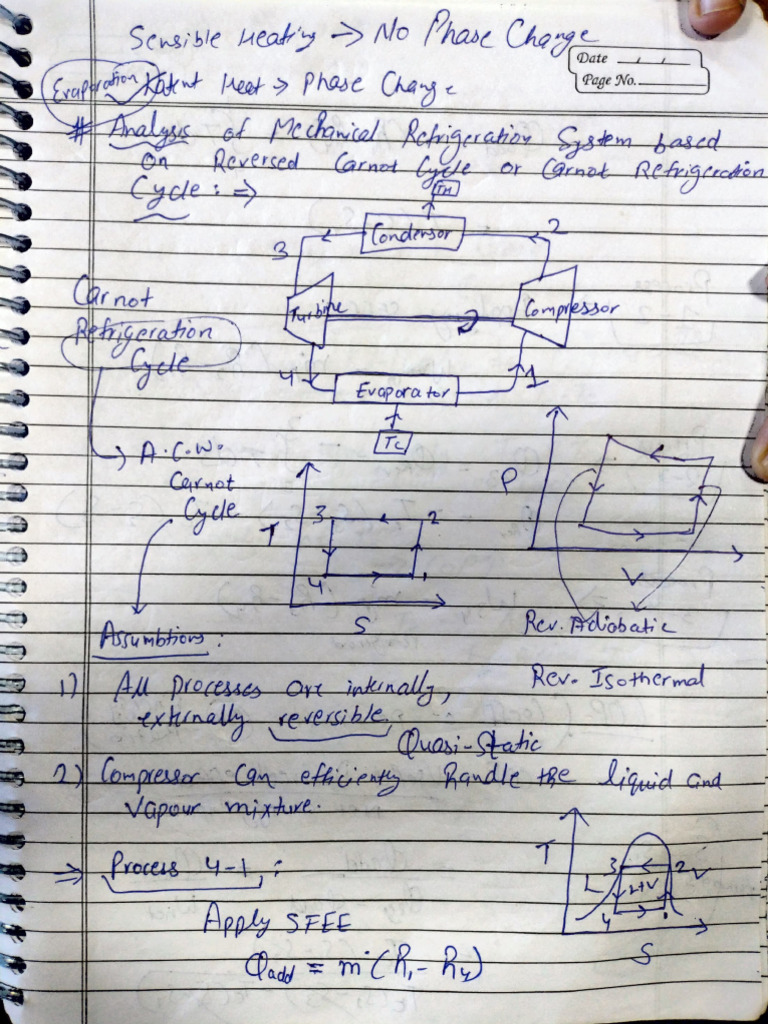 Sensible Heating → No Phase Change
Date
Page No.
Evaporation Latent Heat → Phase Change
# Analysis of Mechanical Refrigeration System based
on Reversed Carnot Cycle or Carnot Refrigeration
Cycle : ⇒
TH
Condensor
3
2
Turbine
Compressor
Carnot
Refrigeration
Cycle
4
1
Evaporator
TL
A.C.W.
Carnot
Cycle
T
3
2
4
1
S
P
V
Rev. Adiobatic
Rev. Isothermal
Assumbtions :
1) All Processes are internally,
externally reversible.
Quasi-Static
2) Compressor can efficiently handle the liquid and
vapour mixture.
⇒ Process 4-1 :
Apply SFEE
Qadd = ṁ (h1 - h4)
T
3
2
L
L+V
V
4
1
S